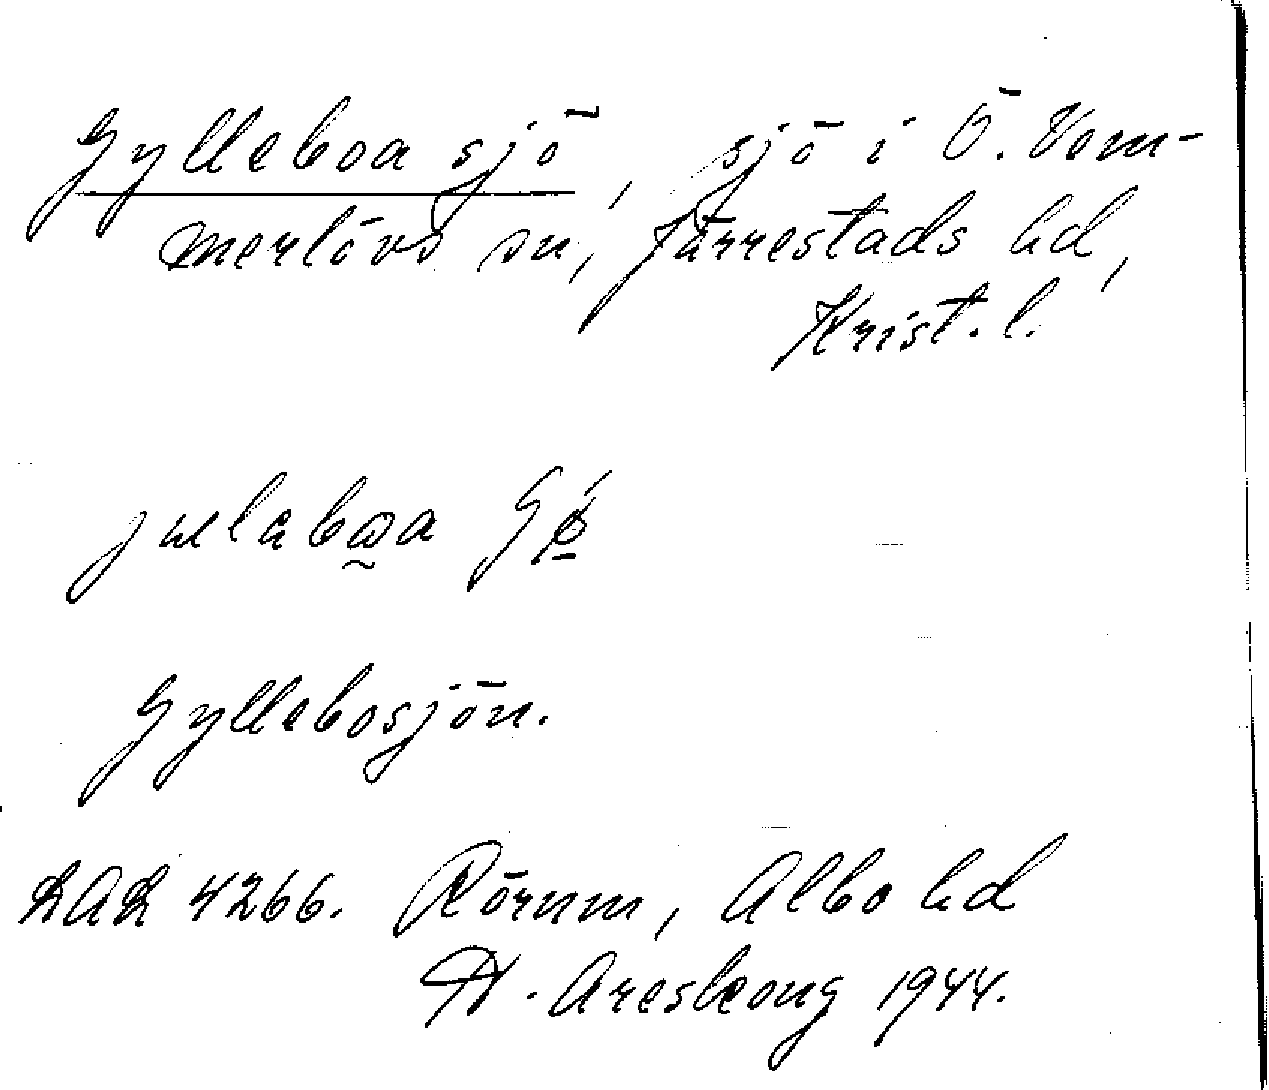 Gylleboa sjö, sjö i Ö. Vem-
merlövs sn, Järrestads hd,
Krist. l.
Gyllebosjön.
LAL 4266. Rörum, Albo hd
H. Areskoug 1944.